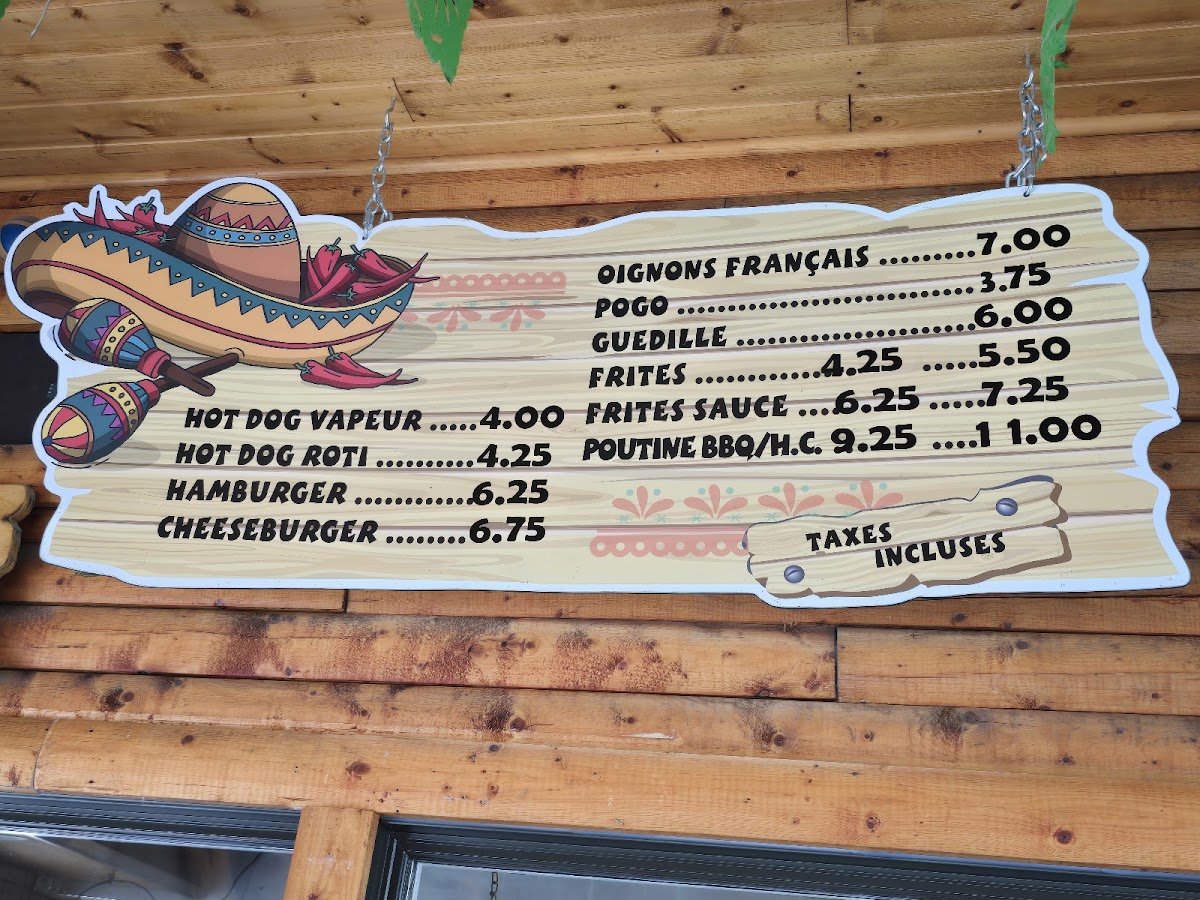 HOT DOG VAPEUR .....4.00
HOT DOG ROTI ..........4.25
HAMBURGER ............6.25
CHEESEBURGER ........6.75
OIGNONS FRANÇAIS .........7.00
POGO ..............................3.75
GUEDILLE ........................6.00
FRITES ............4.25 .....5.50
FRITES SAUCE ....6.25 .....7.25
POUTINE BBQ/H.C. 9.25 ....11.00
TAXES
INCLUSES